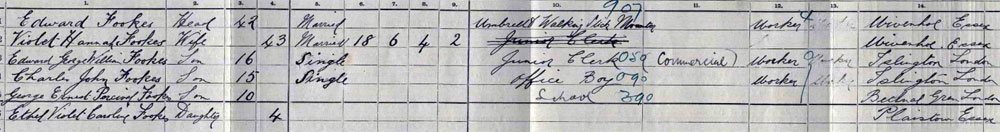 1. 2. 3. 4. 5. 6. 7. 8. 9. 10. 11. 12. 13. 14.
907
Edward Fookes Head 42 Married Umbrella Walking Stick Worker 4 Wivenhoe Essex
Violet Hannah Fookes Wife 43 Married 18 6 4 2 Junior Clerk Wivenhoe, Essex
Edward George William Fookes Son 16 Single Junior Clerk 059 (Commercial) Worker Islington London
Charlie John Fookes Son 15 Single Office Boy 090 Worker Islington London
George Ernest Percival Fookes Son 10 School 390 Bethnal Green London
Ethel Violet Caroline Fookes Daughter 4 Plaistow Essex